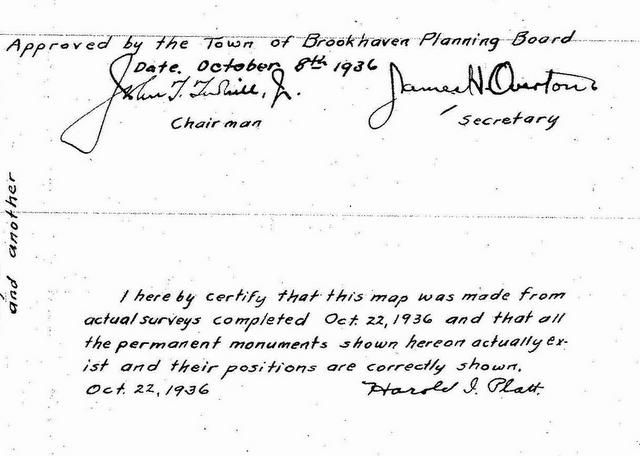 Approved by the Town of Brookhaven Planning Board
Date. October 8th 1936
John T. Tuthill, Jr.
James H. Overton
Chairman
Secretary
and another
I hereby certify that this map was made from
actual surveys completed Oct. 22, 1936 and that all
the permanent monuments shown hereon actually ex-
ist and their positions are correctly shown.
Oct. 22, 1936
Harold I. Platt.